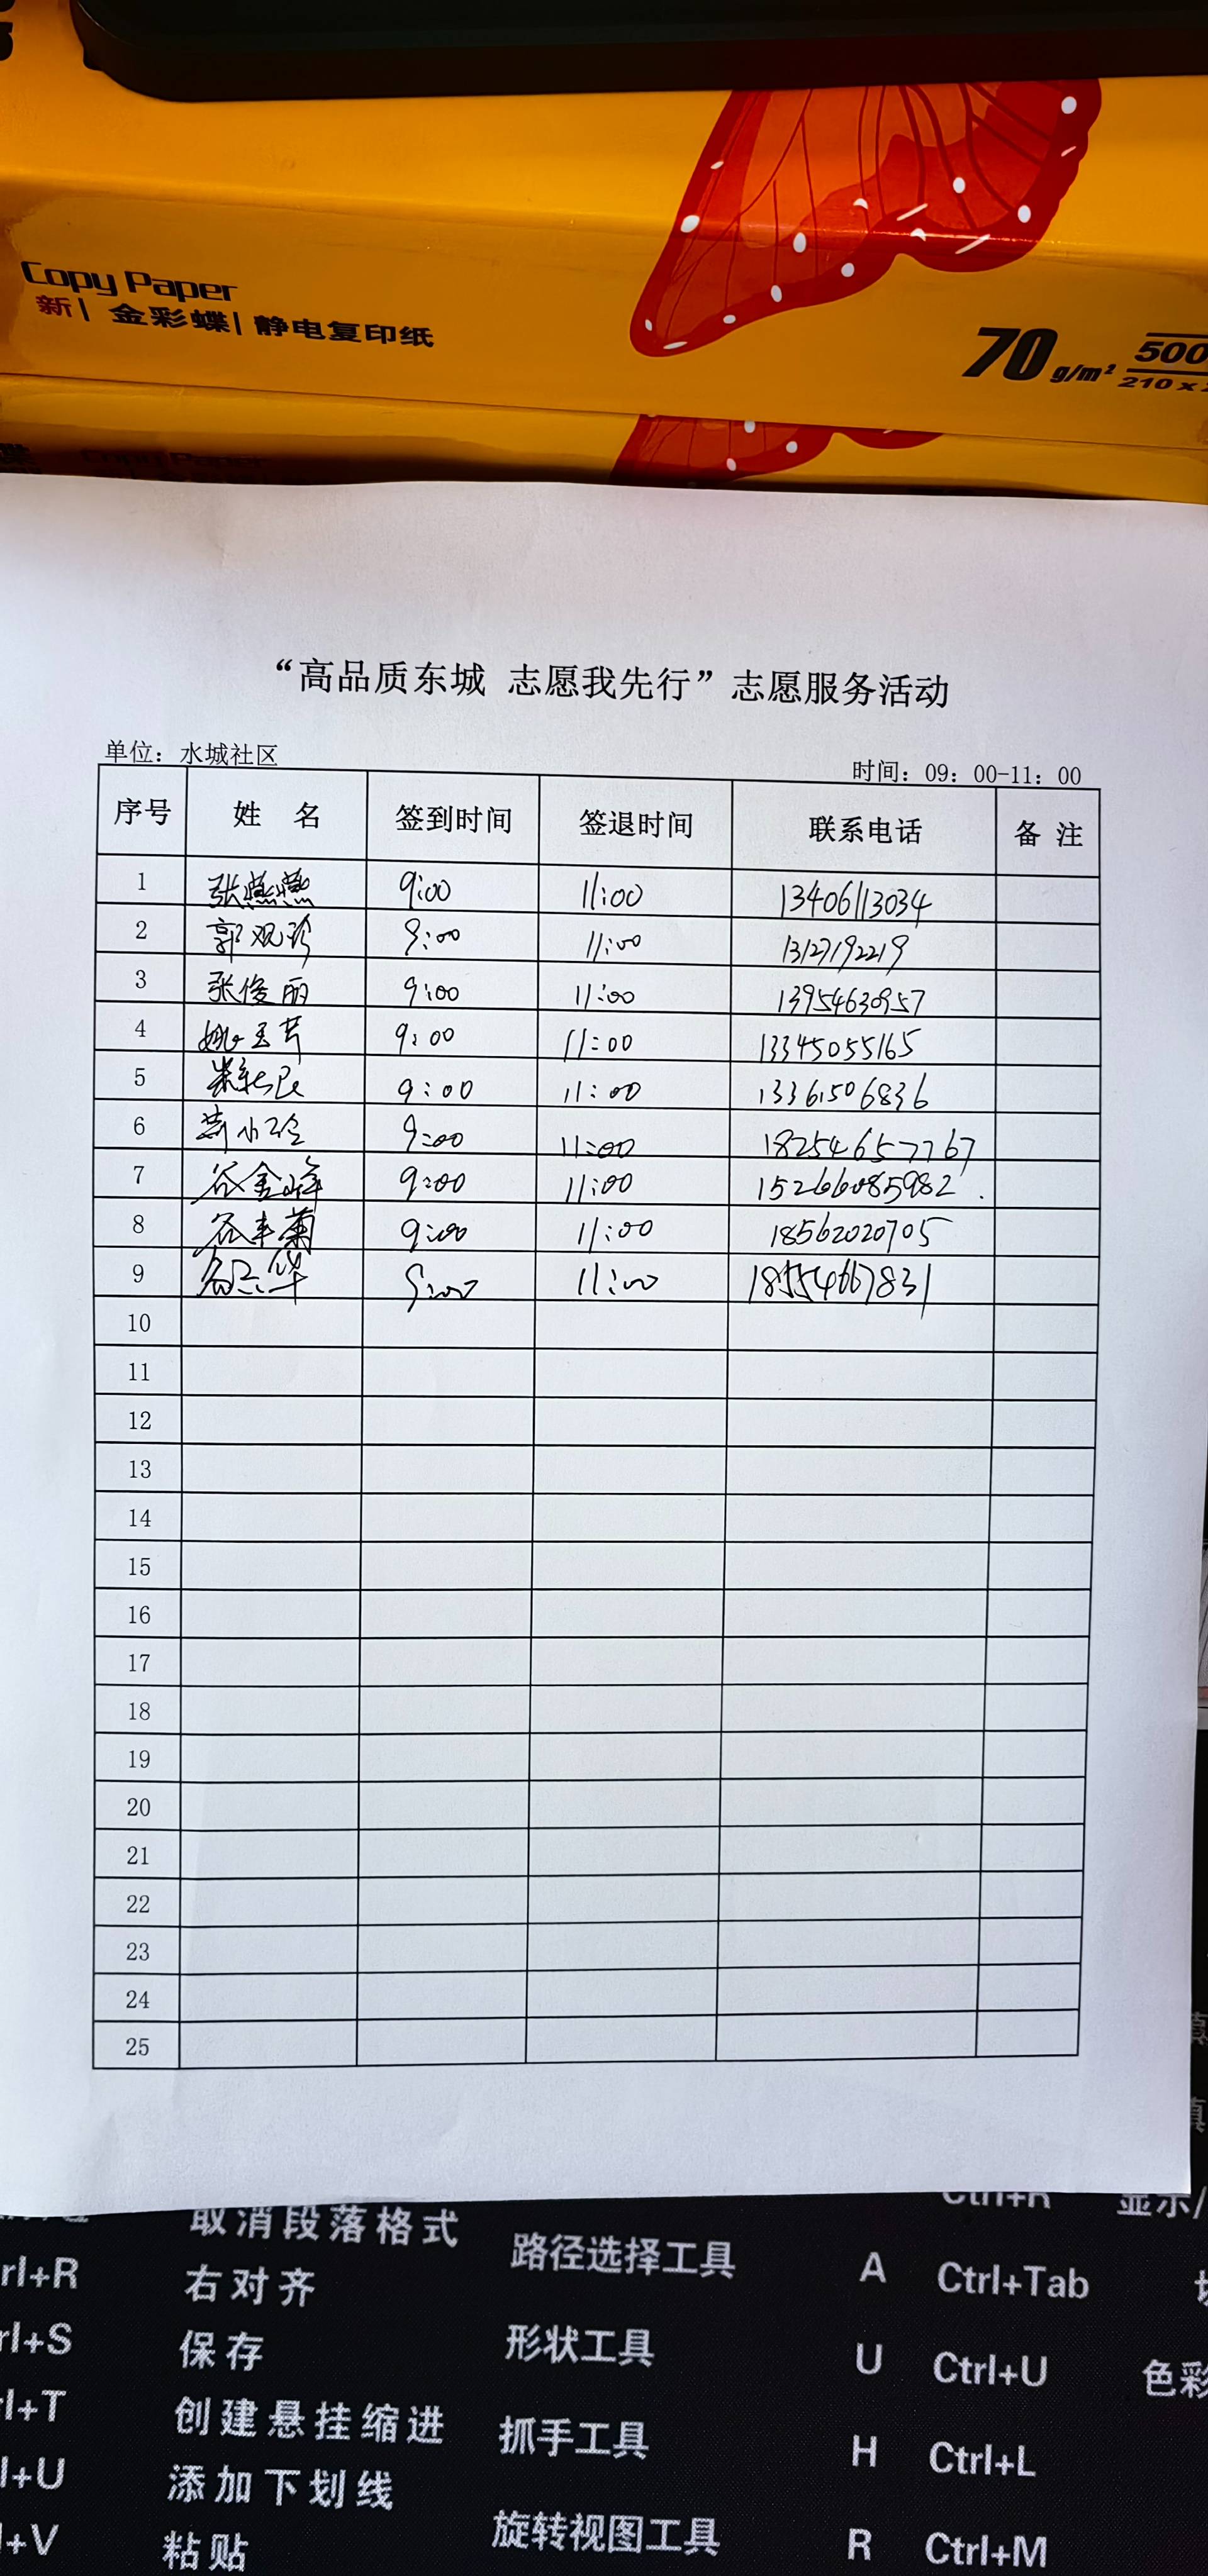 Copy Paper
新| 金彩蝶| 静电复印纸
70 g/m² 500
210 x
“高品质东城 志愿我先行”志愿服务活动
单位：水城社区
时间：09：00-11：00
序号 姓 名 签到时间 签退时间 联系电话 备 注
1 张燕燕 9:00 11:00 13406113034
2 郭观珍 9:00 11:00 13127192219
3 张俊丽 9:00 11:00 13954630957
4 姚玉芹 9:00 11:00 13345055165
5 9:00 11:00 13361506836
6 9:00 11:00 18254657767
7 谷金峰 9:00 11:00 15266085982.
8 谷丰菊 9:00 11:00 18562020705
9 9:00 11:00 18554667831
10
11
12
13
14
15
16
17
18
19
20
21
22
23
24
25
取消段落格式 路径选择工具 A Ctrl+Tab
rl+R 右对齐 形状工具 U Ctrl+U 色彩
rl+S 保存 抓手工具 H Ctrl+L
l+T 创建悬挂缩进 旋转视图工具 R Ctrl+M
l+U 添加下划线
+V 粘贴
Ctrl+R 显示/